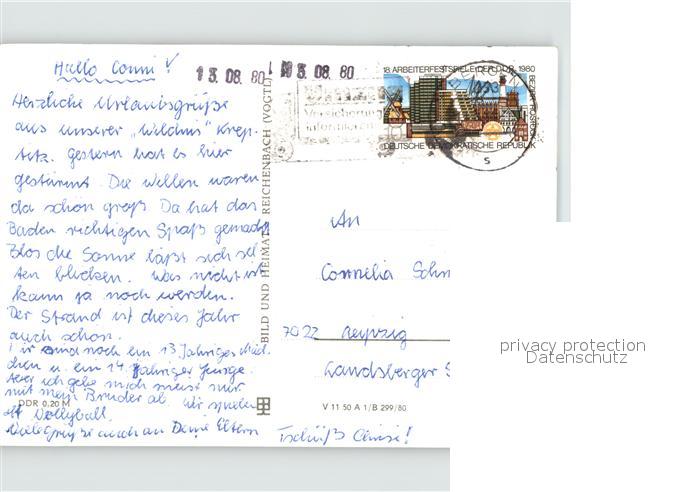 Hallo Conni!
13.08.80 13.08.80
Herzliche Urlaubsgrüße
aus unserer „Wildnis" Krep-
titz. Gestern hat es hier
gestürmt. Die Wellen waren
da schön groß. Da hat das
Baden richtigen Spaß gemacht
Blos die Sonne läßt sich sel-
ten blicken. Was nicht ist
kann ja noch werden.
Der Strand ist dieses Jahr
auch schön.
noch ein 13 Jähriges Mäd-
chen u. ein 14 Jähriger Junge.
Aber ich gebe mich meist nur
mit mein Bruder ab. Wir spielen
oft Volleyball.
Viele Grüße auch an Deine Eltern
Tschüß
DDR 0,20 M
BILD UND HEIMAT REICHENBACH (VOGTL)
V 11 50 A 1/B 299/80
18. ARBEITERFESTSPIELE DER DDR 1980
BEZIRK ROSTOCK
DEUTSCHE DEMOKRATISCHE REPUBLIK
Versicherung
informieren
An
Cornelia Schn
7022 Leipzig
Landsberger S
privacy protection
Datenschutz